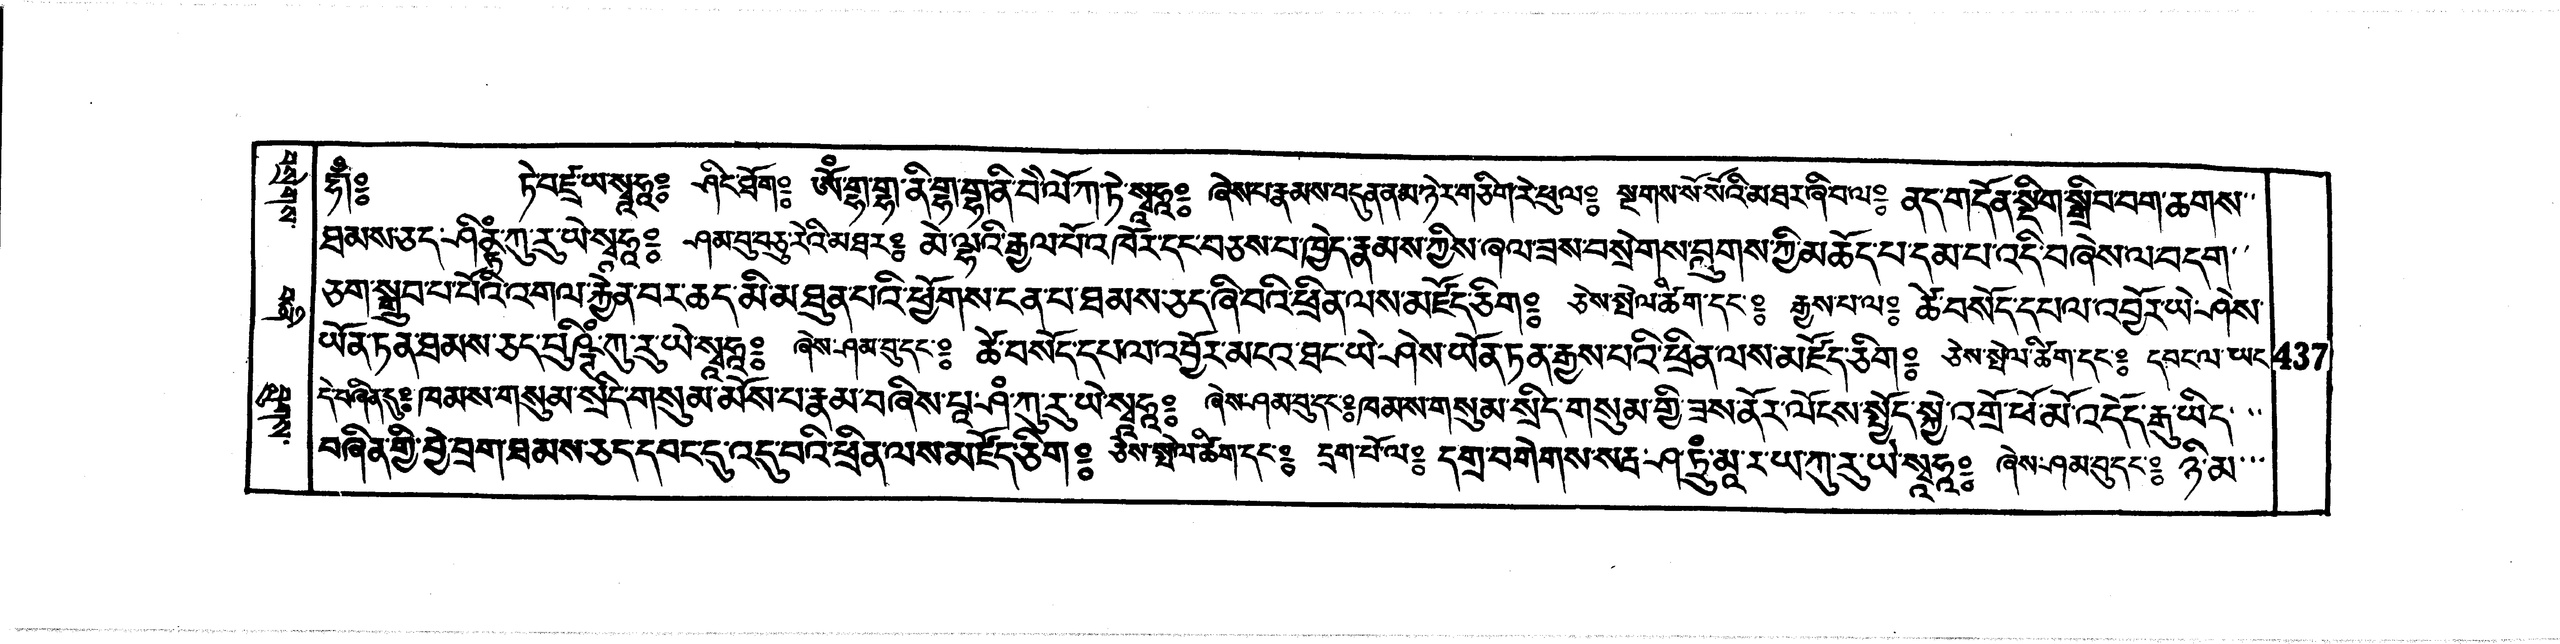 ཧཱུྃ༔ ཏེ་བཛྲ་ཡ་སྭཱཧཱ༔ ཤིང་ཐོག༔ ཨོཾ་གྷ་གྷ་ནི་གྷ་གྷ་ནི་བི་ལོ་ཀ་ཏེ་སྭཱཧཱ༔ ཞེས་པ་རྣམས་བདུན་ནམ་ཉེར་གཅིག་རེ་ཕུལ༔ སྔགས་སོ་སོའི་མཐར་ཞི་བ་ལ༔ ནད་གདོན་སྡིག་སྒྲིབ་བག་ཆགས་
ཐམས་ཅད་ཤཱནྟིཾ་ཀུ་རུ་ཡེ་སྭཱཧཱ༔ ཤམ་བུ་བཅུ་རེའི་མཐར༔ མེ་ལྷའི་རྒྱལ་པོ་འཁོར་དང་བཅས་པ་ཁྱེད་རྣམས་ཀྱིས་ཞལ་ཟས་བསྲེགས་བླུགས་ཀྱི་མཆོད་པ་དམ་པ་འདི་བཞེས་ལ་བདག་
ཅག་སྒྲུབ་པ་པོའི་འགལ་རྐྱེན་བར་ཆད་མི་མཐུན་པའི་ཕྱོགས་ངན་པ་ཐམས་ཅད་ཞི་བའི་ཕྲིན་ལས་མཛོད་ཅིག༔ ཅེས་སྤེལ་ཚིག་དང་༔ རྒྱས་པ་ལ༔ ཚེ་བསོད་དཔལ་འབྱོར་ཡེ་ཤེས་
ཡོན་ཏན་ཐམས་ཅད་པུཥྚིཾ་ཀུ་རུ་ཡེ་སྭཱཧཱ༔ ཞེས་ཤམ་བུ་དང་༔ ཚེ་བསོད་དཔལ་འབྱོར་མངའ་ཐང་ཡེ་ཤེས་ཡོན་ཏན་རྒྱས་པའི་ཕྲིན་ལས་མཛོད་ཅིག༔ ཅེས་སྤེལ་ཚིག་དང་༔ དབང་ལ་ཡང་ 437
དེ་བཞིན་དུ༔ ཁམས་གསུམ་སྲིད་གསུམ་མོས་པ་རྣམ་བཞིས་པཱ་ཤཾ་ཀུ་རུ་ཡེ་སྭཱཧཱ༔ ཞེས་ཤམ་བུ་དང་༔ ཁམས་གསུམ་སྲིད་གསུམ་གྱི་ཟས་ནོར་ལོངས་སྤྱོད་སྐྱེ་འགྲོ་ཕོ་མོ་འདོད་རྒུ་ཡིད་
བཞིན་གྱི་བྱེ་བྲག་ཐམས་ཅད་དབང་དུ་འདུ་བའི་ཕྲིན་ལས་མཛོད་ཅིག༔ ཅེས་སྤེལ་ཚིག་དང་༔ དྲག་པོ་ལ༔ དགྲ་བགེགས་སརྦ་ཤ་ཏྲུཾ་མཱ་ར་ཡ་ཀུ་རུ་ཡེ་སྭཱཧཱ༔ ཞེས་ཤམ་བུ་དང་༔ ཉི་མ་